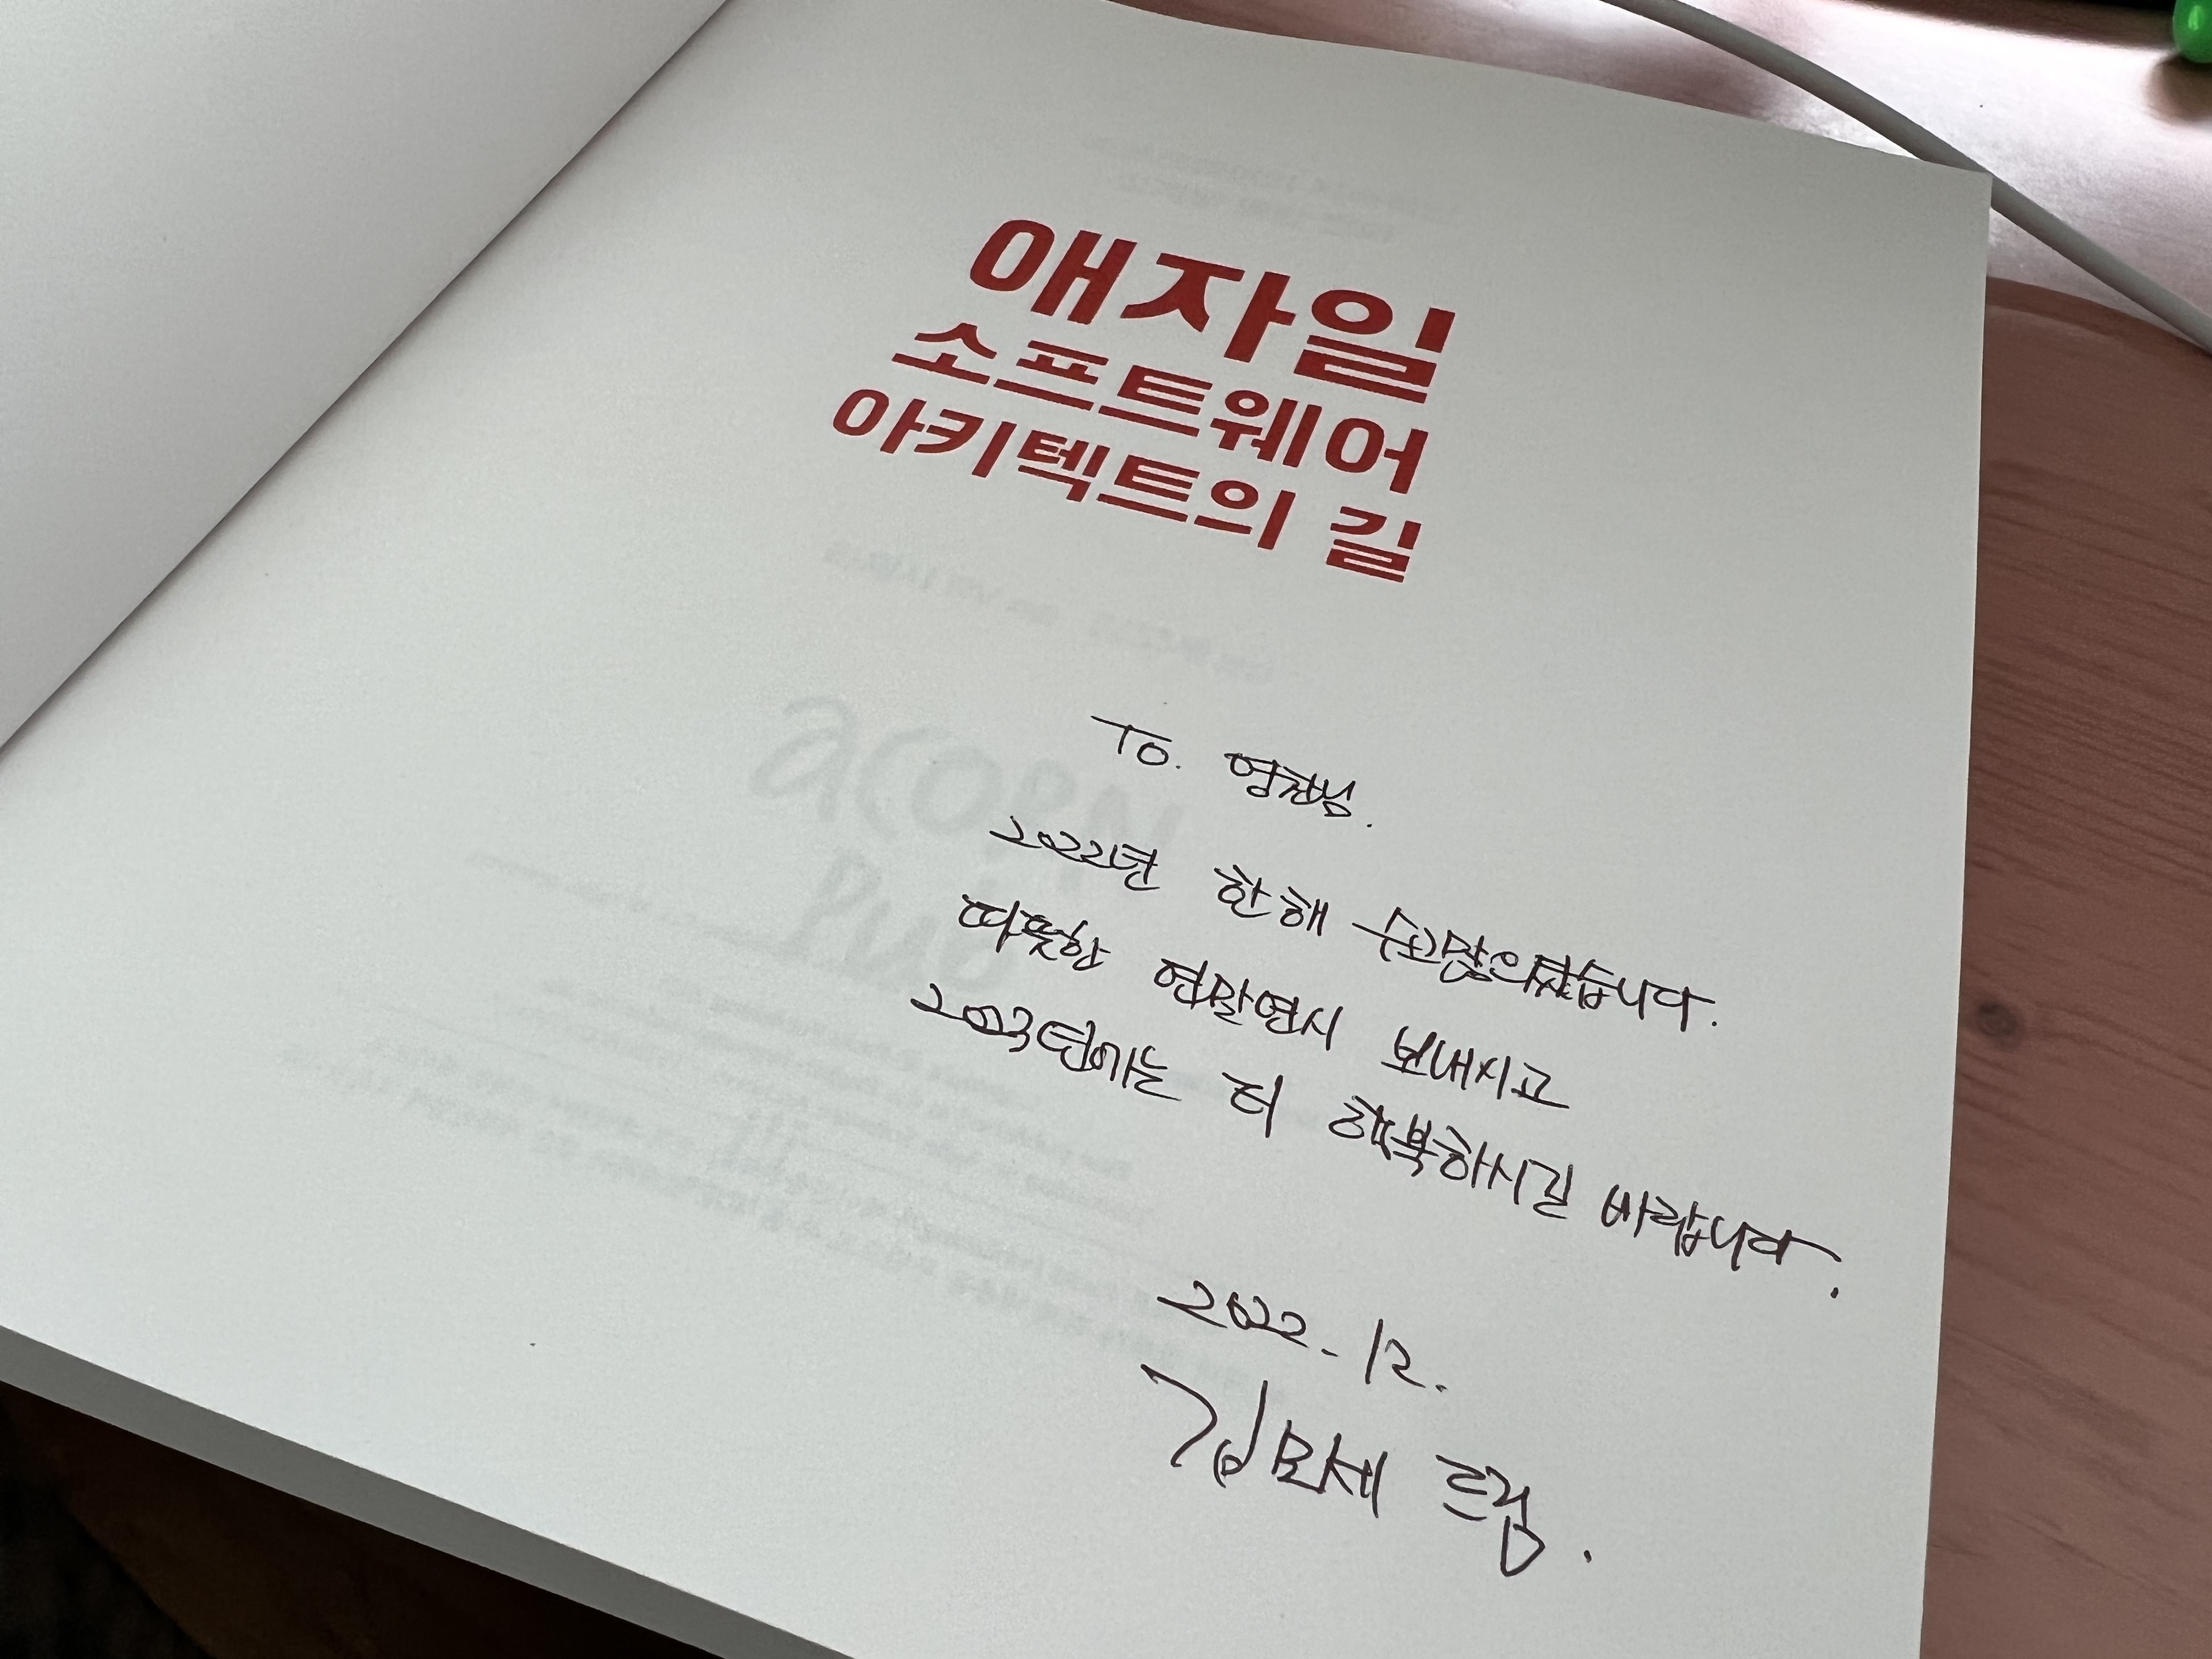 애자일
소프트웨어
아키텍트의 길
To. 영권님.
2022년 한 해 수고많으셨습니다.
따뜻한 연말연시 보내시고
2023년에는 더 행복하시길 바랍니다.
2022. 12.
김모세 드림.
acorn
Pub